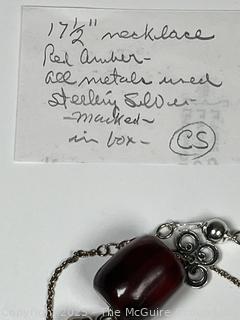 17 1/2" necklace
Red Amber-
all metals used
Sterling Silver-
-Marked-
in box-
CS
Copyright 2025 - The McGuire Group